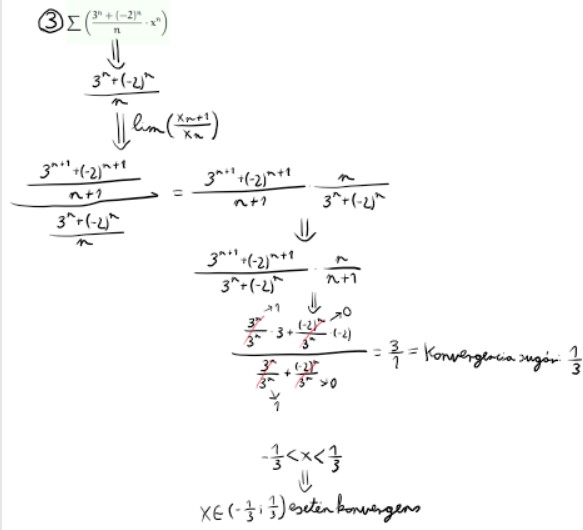 ③ Σ ( (3^n + (-2)^n) / n · x^n )
⇓
(3^n + (-2)^n) / n
⇓ lim ( x_{n+1} / x_n )
((3^{n+1} + (-2)^{n+1}) / (n+1)) / ((3^n + (-2)^n) / n) = (3^{n+1} + (-2)^{n+1}) / (n+1) · n / (3^n + (-2)^n)
⇓
(3^{n+1} + (-2)^{n+1}) / (3^n + (-2)^n) · n / (n+1)
⇓
(3^n/3^n →1 · 3 + (-2)^n/3^n →0 · (-2)) / (3^n/3^n →1 + (-2)^n/3^n →0) = 3/1 = Konvergencia sugár: 1/3
-1/3 < x < 1/3
⇓
x∈(-1/3 ; 1/3) esetén konvergens